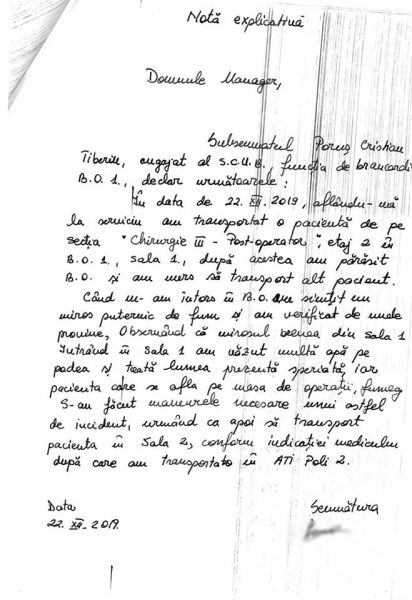 Notă explicativă
Domnule Manager,
Subsemnatul Poruș Cristian
Tiberiu, angajat al S.C.U.B., funcția de brancardi
B.O. 1., declar următoarele:
În data de 22. XII. 2019, aflându-mă
la serviciu am transportat o pacientă de pe
secția "Chirurgie III - Post-operator", etaj 2 în
B.O. 1., sala 1., după acestea am părăsit
B.O. și am mers să transport alt pacient.
Când m-am întors în B.O. am simțit un
miros puternic de fum și am verificat de unde
provine, Observând că mirosul venea din sala 1
Intrând în Sala 1 am văzut multă apă pe
podea și toată lumea prezentă speriată, iar
pacienta care se afla pe masa de operații, fumeg
S-au făcut manevrele necesare unui astfel
de incident, urmând ca apoi să transport
pacienta în Sala 2, conform indicației medicului
după care am transportat-o în ATI Poli 2.
Data
22. XII. 2019.
Semnătura